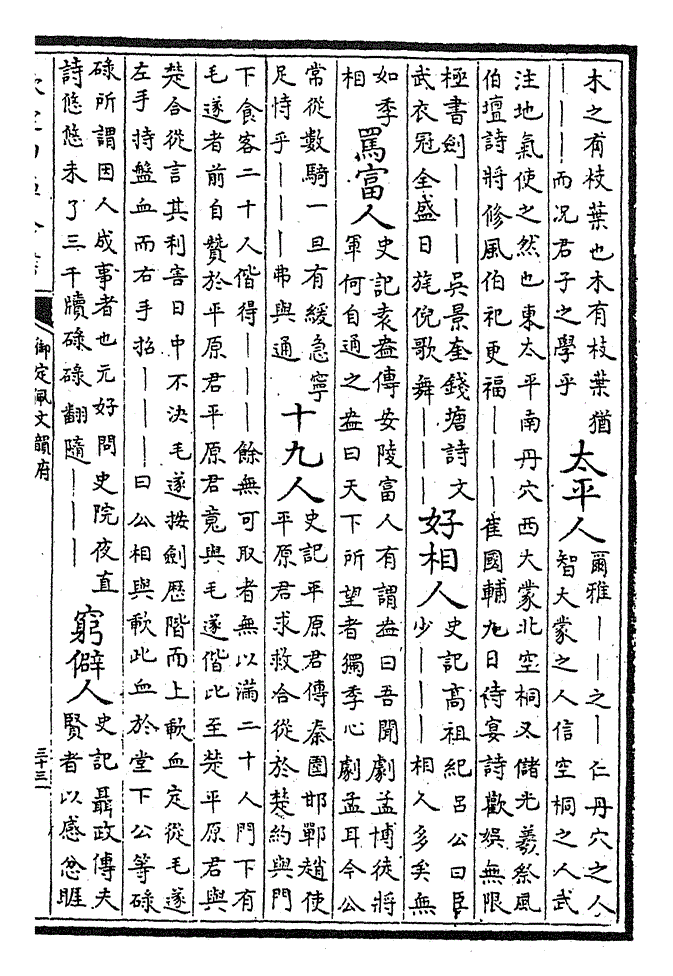 木之有枝葉也木有枝葉猶
丨丨丨而况君子之學乎
太平人
爾雅丨丨之丨仁丹穴之人
智大蒙之人信空桐之人武
注地氣使之然也東太平南丹穴西大蒙北空桐又儲光羲祭風
伯壇詩將修風伯祀更福丨丨丨崔國輔九日侍宴詩歡娱無限
極書劍丨丨丨吳景奎錢塘詩文
武衣冠全盛日旄倪歌舞丨丨丨
好相人
史記高祖紀吕公曰臣
少丨丨丨相人多矣無
如季
相
罵富人
史記袁盎傳安陵富人有謂盎曰吾聞劇孟博徒將
軍何自通之盎曰天下所望者獨季心劇孟耳今公
常從數騎一旦有緩急寧
足恃乎丨丨丨弗與通
十九人
史記平原君傳秦圍邯鄲趙使
平原君求救合從於楚約與門
下食客二十人偕得丨丨丨餘無可取者無以滿二十人門下有
毛遂者前自贊於平原君平原君竟與毛遂偕比至楚平原君與
楚合從言其利害日中不決毛遂按劍歷階而上歃血定從毛遂
左手持盤血而右手招丨丨丨曰公相與歃此血於堂下公等碌
碌所謂因人成事者也元好問史院夜直
詩悠悠未了三千牘碌碌翻隨丨丨丨
窮僻人
史記聶政傳夫
賢者以感忿睚
御定佩文韻府
三十三